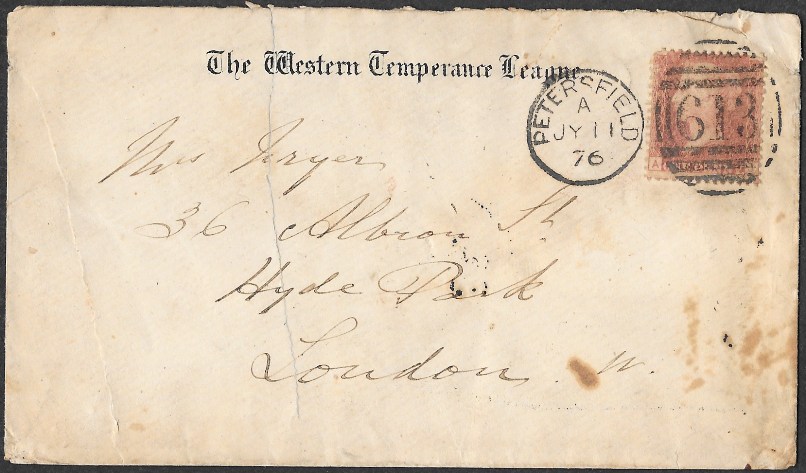 The Western Temperance League
PETERSFIELD
A
JY 11
76
613
Mrs Fryer
36 Albion St
Hyde Park
London W.